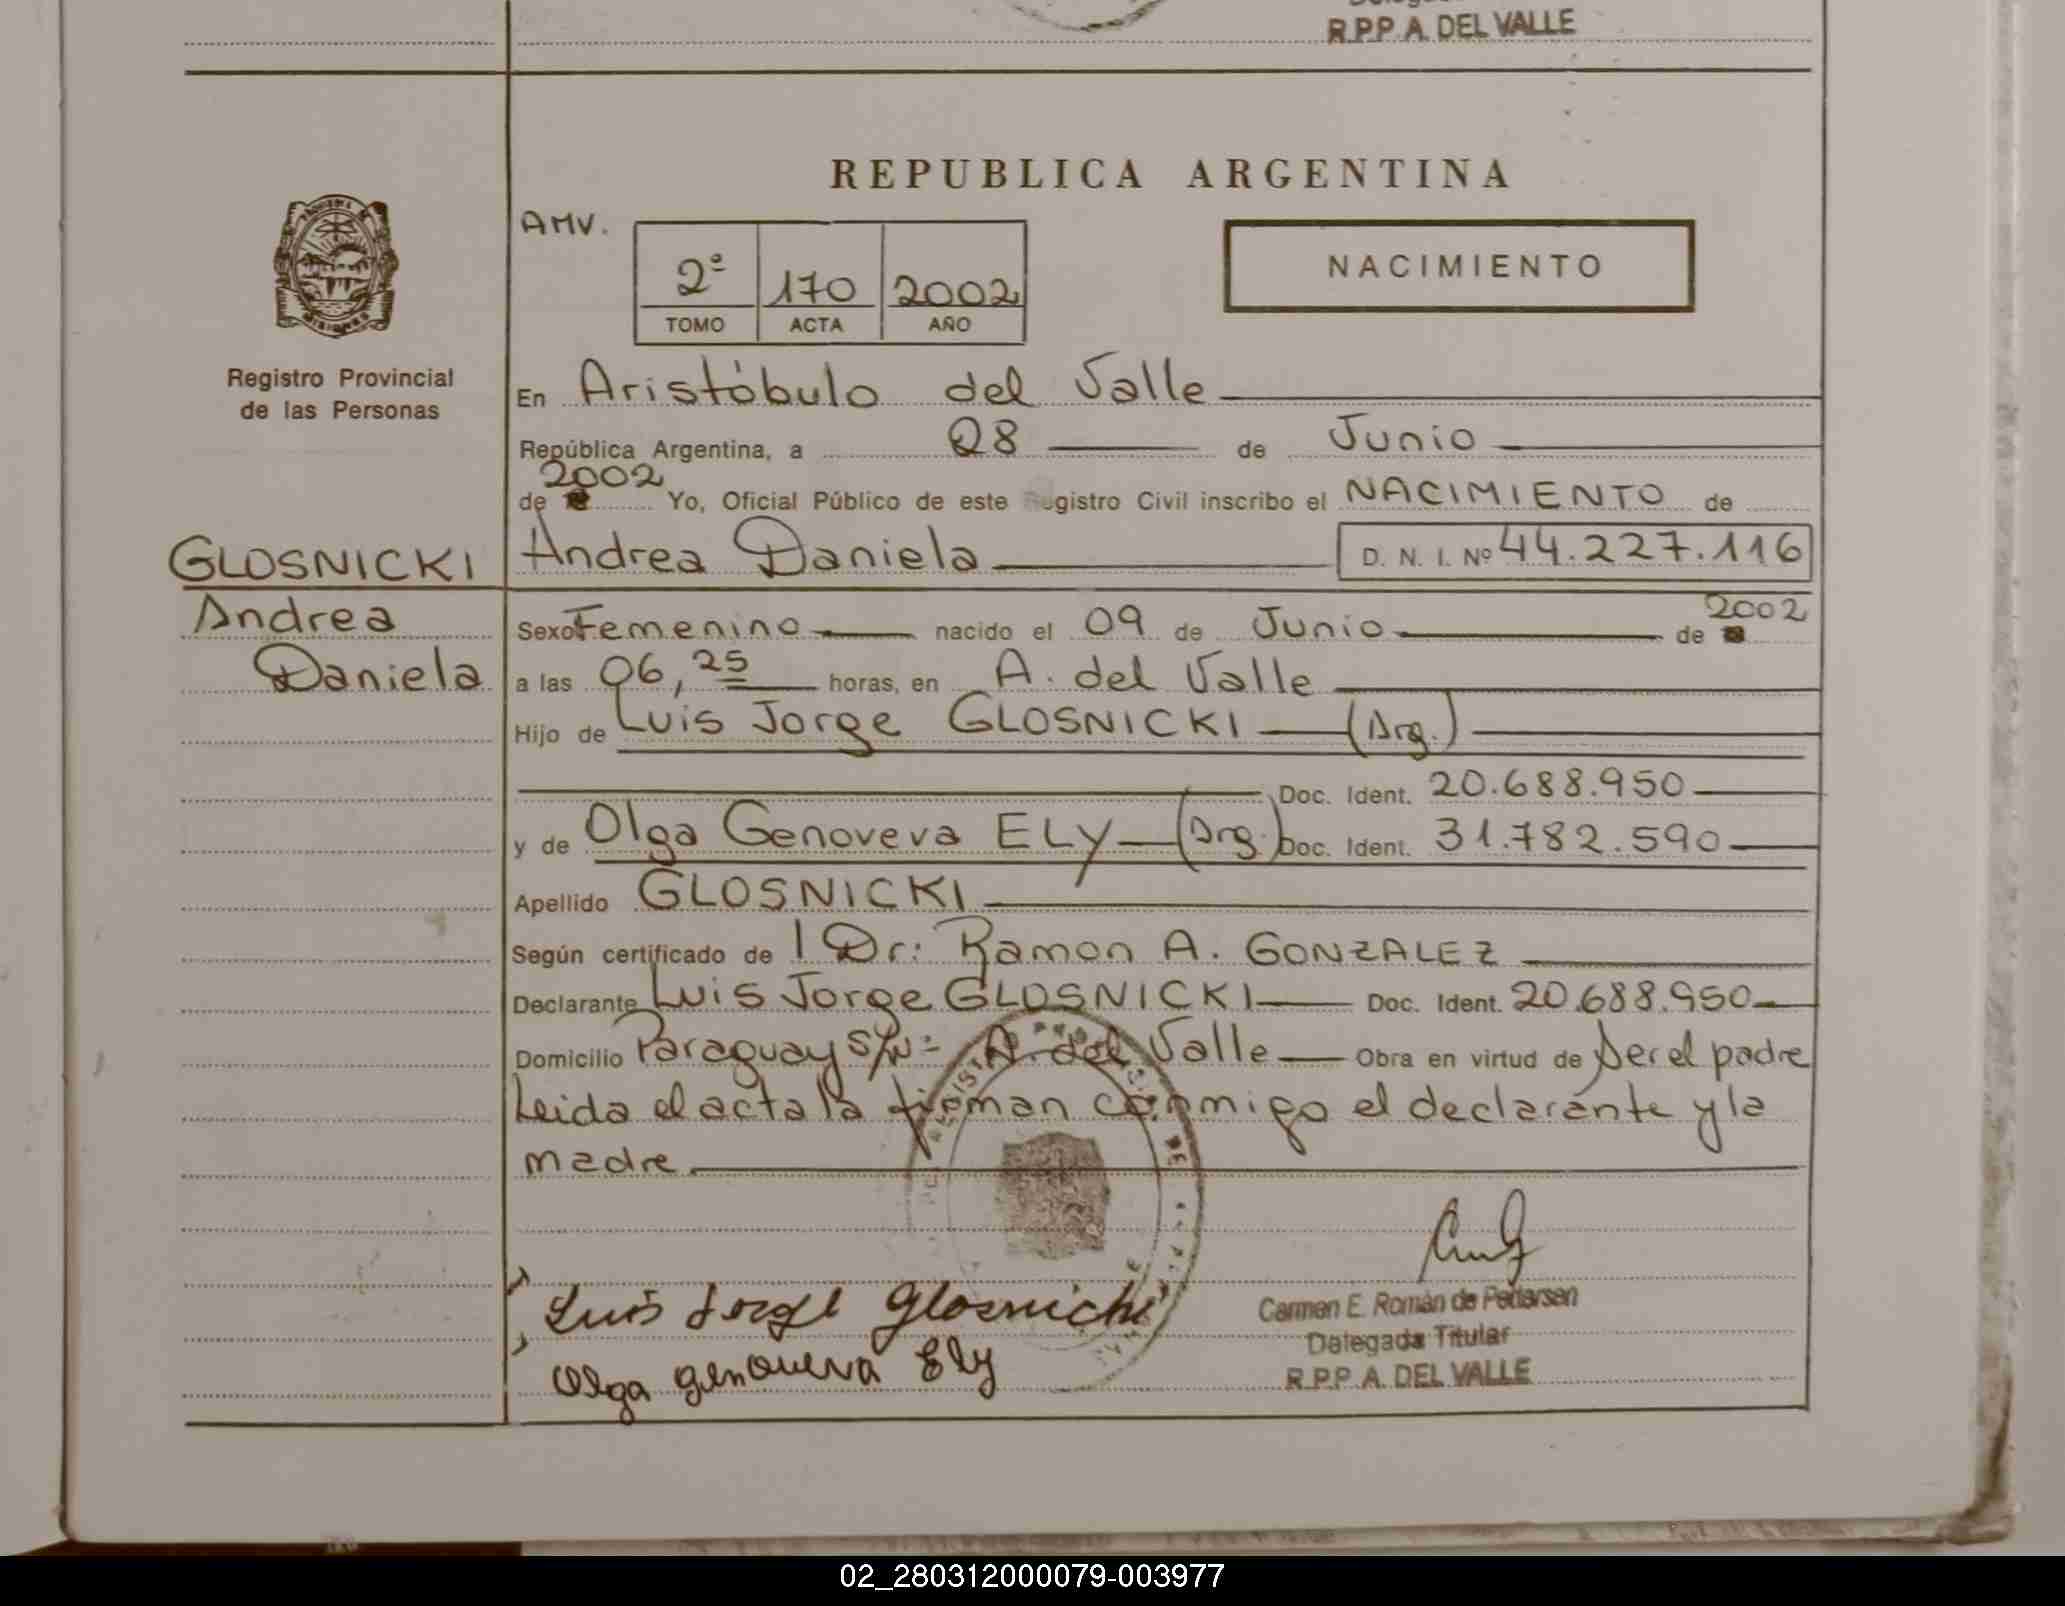 R.P.P. A. DEL VALLE
REPUBLICA ARGENTINA
AMV.
2º 170 2002
TOMO ACTA AÑO
NACIMIENTO
Registro Provincial
de las Personas
En Aristóbulo del Valle
República Argentina, a 28 de Junio
2002
de Yo, Oficial Público de este Registro Civil inscribo el NACIMIENTO de
GLOSNICKI
Andrea
Daniela
Andrea Daniela D. N. I. Nº 44.227.116
Sexo Femenino nacido el 09 de Junio de 2002
a las 06,25 horas, en A. del Valle
Hijo de Luis Jorge GLOSNICKI (Arg.)
Doc. Ident. 20.688.950
y de Olga Genoveva ELY (Arg.) Doc. Ident. 31.782.590
Apellido GLOSNICKI
Según certificado de l Dr: Ramon A. GONZALEZ
Declarante Luis Jorge GLOSNICKI Doc. Ident. 20.688.950
Domicilio Paraguay S/Nº A. del Valle Obra en virtud de ser el padre
Leida el acta la firman conmigo el declarante y la
madre.
Luis Jorge Glosnicki
Olga Genoveva Ely
Carmen E. Román de Pedersen
Delegada Titular
R.P.P. A. DEL VALLE
02_280312000079-003977